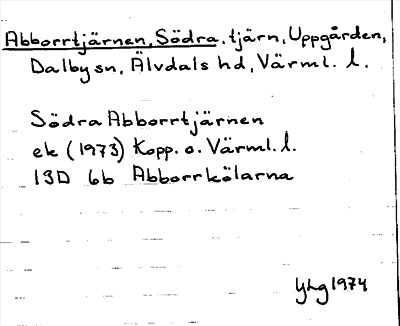 Abborrtjärnen, Södra, tjärn, Uppgården,
Dalby sn, Älvdals hd, Värml. l.
Södra Abborrtjärnen
ek (1973) Kopp. o. Värml. l.
13D 6b Abborrkölarna
YLg 1974